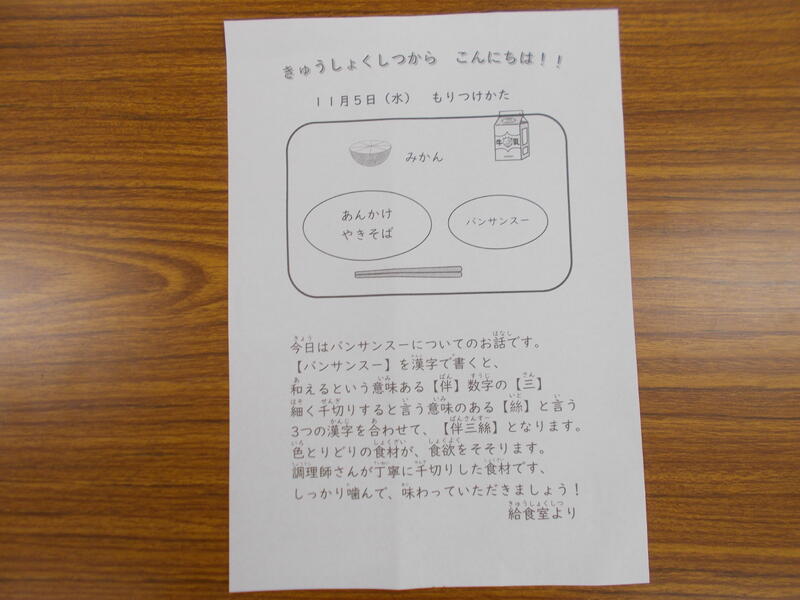 きゅうしょくしつから　こんにちは！！
１１月５日（水）　もりつけかた
みかん
牛乳
あんかけ
やきそば
バンサンスー
今日はバンサンスーについてのお話です。
【バンサンスー】を漢字で書くと、
和えるという意味ある【伴】数字の【三】
細く千切りすると言う意味のある【絲】と言う
3つの漢字を合わせて、【伴三絲】となります。
色とりどりの食材が、食欲をそそります。
調理師さんが丁寧に千切りした食材です、
しっかり噛んで、味わっていただきましょう！
給食室より